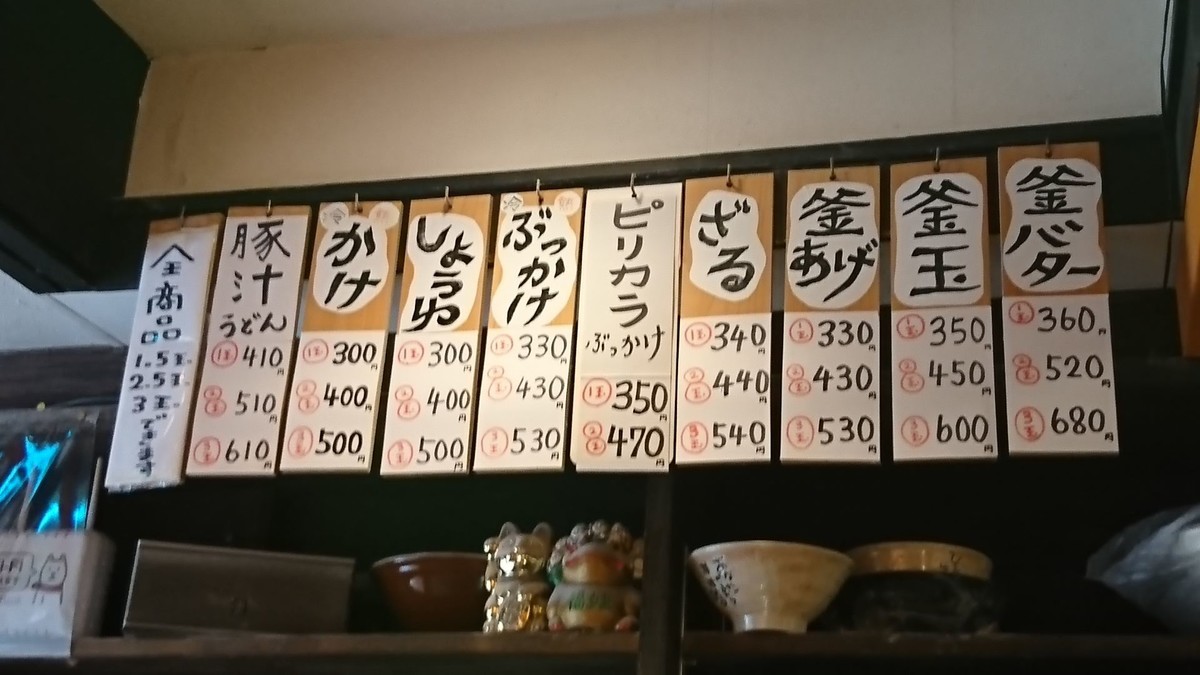 釜バター
1玉 360円
2玉 520円
3玉 680円
釜玉
1玉 350円
2玉 450円
3玉 600円
釜あげ
1玉 330円
2玉 430円
3玉 530円
ざる
1玉 340円
2玉 440円
3玉 540円
ピリカラ
ぶっかけ
1玉 350円
2玉 470円
冷 熱
ぶっかけ
1玉 330円
2玉 430円
3玉 530円
しょうゆ
1玉 300円
2玉 400円
3玉 500円
冷 熱
かけ
1玉 300円
2玉 400円
3玉 500円
豚汁
うどん
1玉 410円
2玉 510円
3玉 610円
全商品
1.5玉
2.5玉
3玉できます